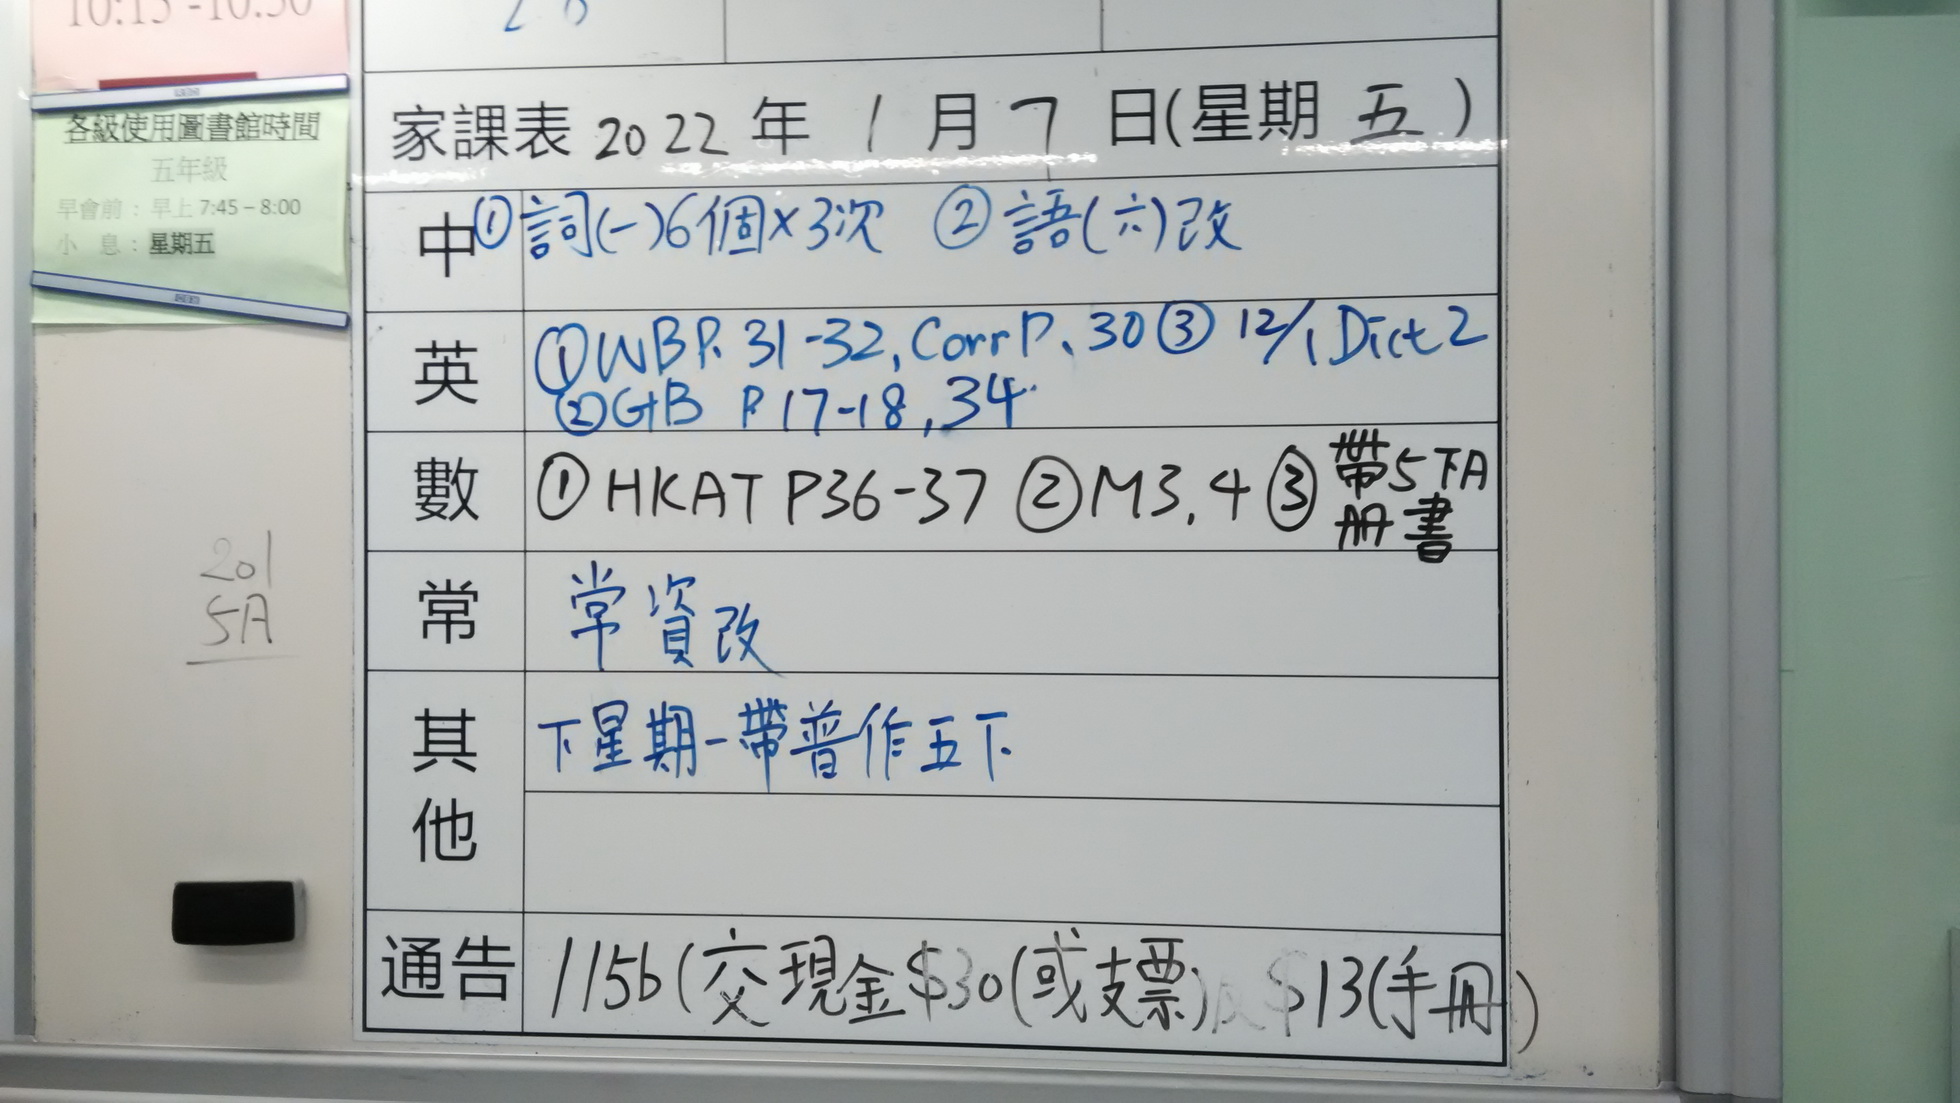 10:15 -10:30
各級使用圖書館時間
五年級
早會前：早上 7:45 – 8:00
小 息：星期五
201
5A
家課表 2022 年 1 月 7 日(星期 五 )
中 ① 詞(一)6個×3次 ② 語(六)改
英 ① WB P. 31-32, Corr P. 30 ③ 12/1 Dict 2
② GB P 17-18, 34
數 ① HKAT P36-37 ② M3, 4 ③ 帶5下A
冊書
常 常資改
其他 下星期一帶普作五下
通告 115b (交現金$30(或支票)及$13(手冊)